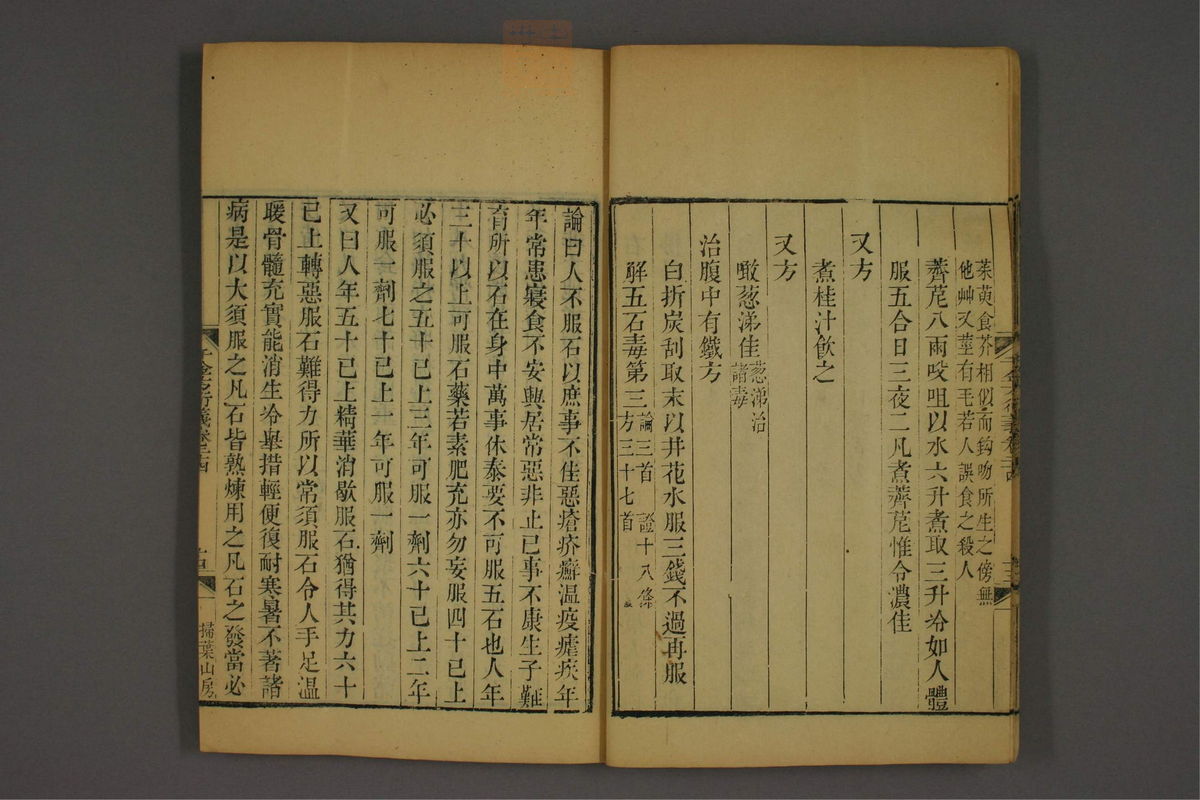 茱萸食芥相似而鈎吻所生之傍無
他艸又莖有毛若人誤食之殺人
薺苨八兩㕮咀以水六升煮取三升冷如人體
服五合日三夜二凡煮薺苨惟令濃佳
又方
煮桂汁飲之
又方
噉葱涕佳葱涕治
諸毒
治腹中有鐵方
白折炭刮取末以井花水服三錢不過再服
解五石毒第三論三首 證十八條
方三十七首
論曰人不服石以庶事不佳惡瘡疥癬温疫瘧疾年
年常患寢食不安興居常惡非止已事不康生子難
育所以石在身中萬事休泰要不可服五石也人年
三十以上可服石藥若素肥充亦勿妄服四十已上
必須服之五十已上三年可服一劑六十已上二年
可服一劑七十已上一年可服一劑
又曰人年五十已上精華消歇服石猶得其力六十
已上轉惡服石難得力所以常須服石令人手足温
暖骨髓充實能消生冷舉措輕便復耐寒暑不著諸
病是以大須服之凡石皆熟煉用之凡石之發當必
千金方衍義卷二十四
十四
掃葉山房